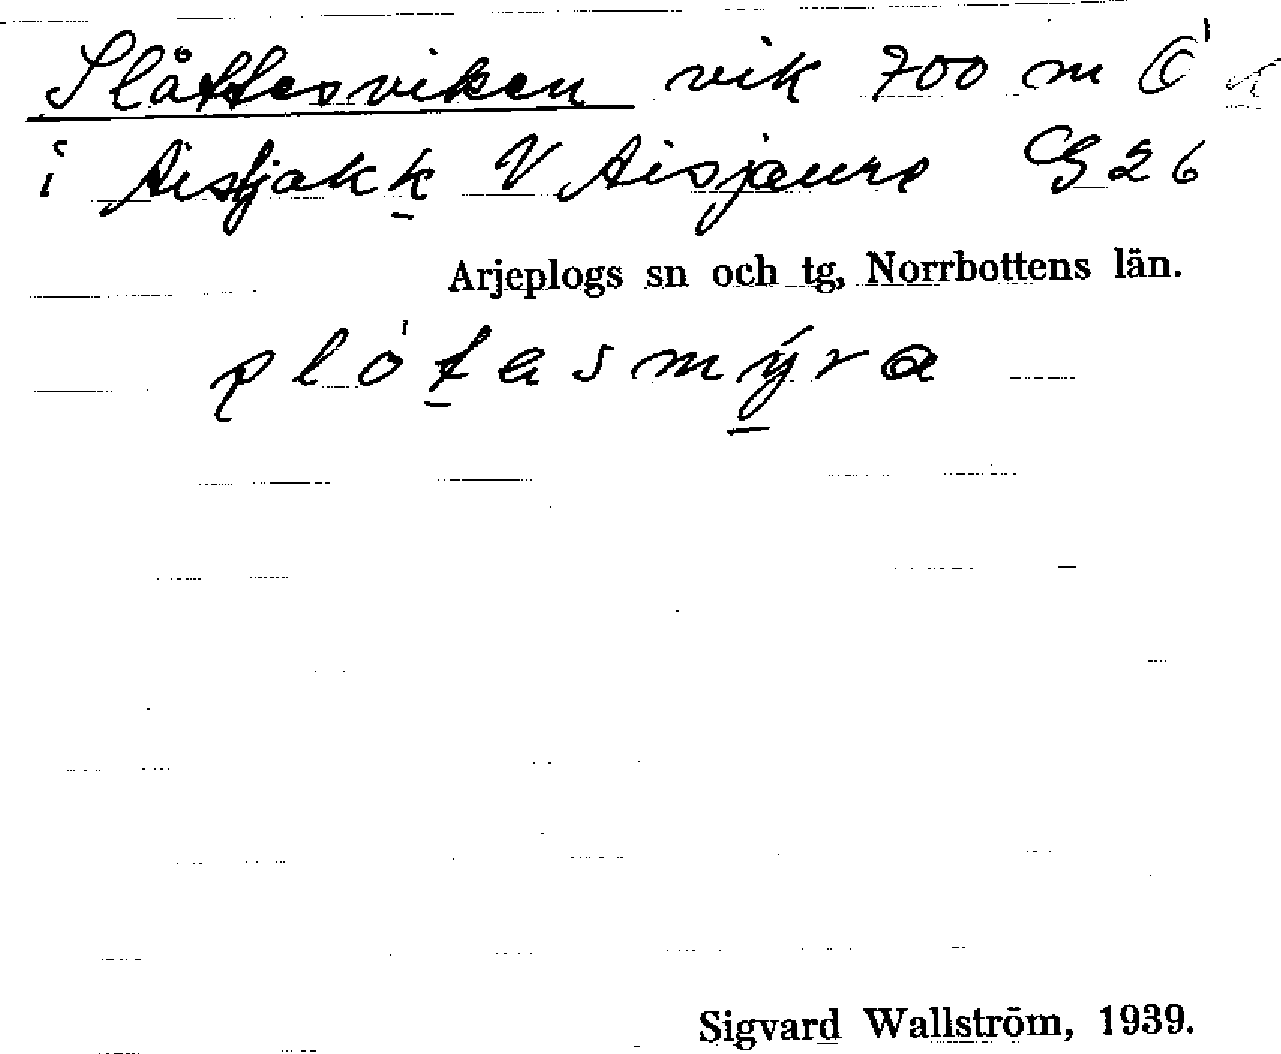 Slåttesviken vik 700 m Ö
i Aisjakk V Aisjaure G26
Arjeplogs sn och tg, Norrbottens län.
plótasmýra
Sigvard Wallström, 1939.